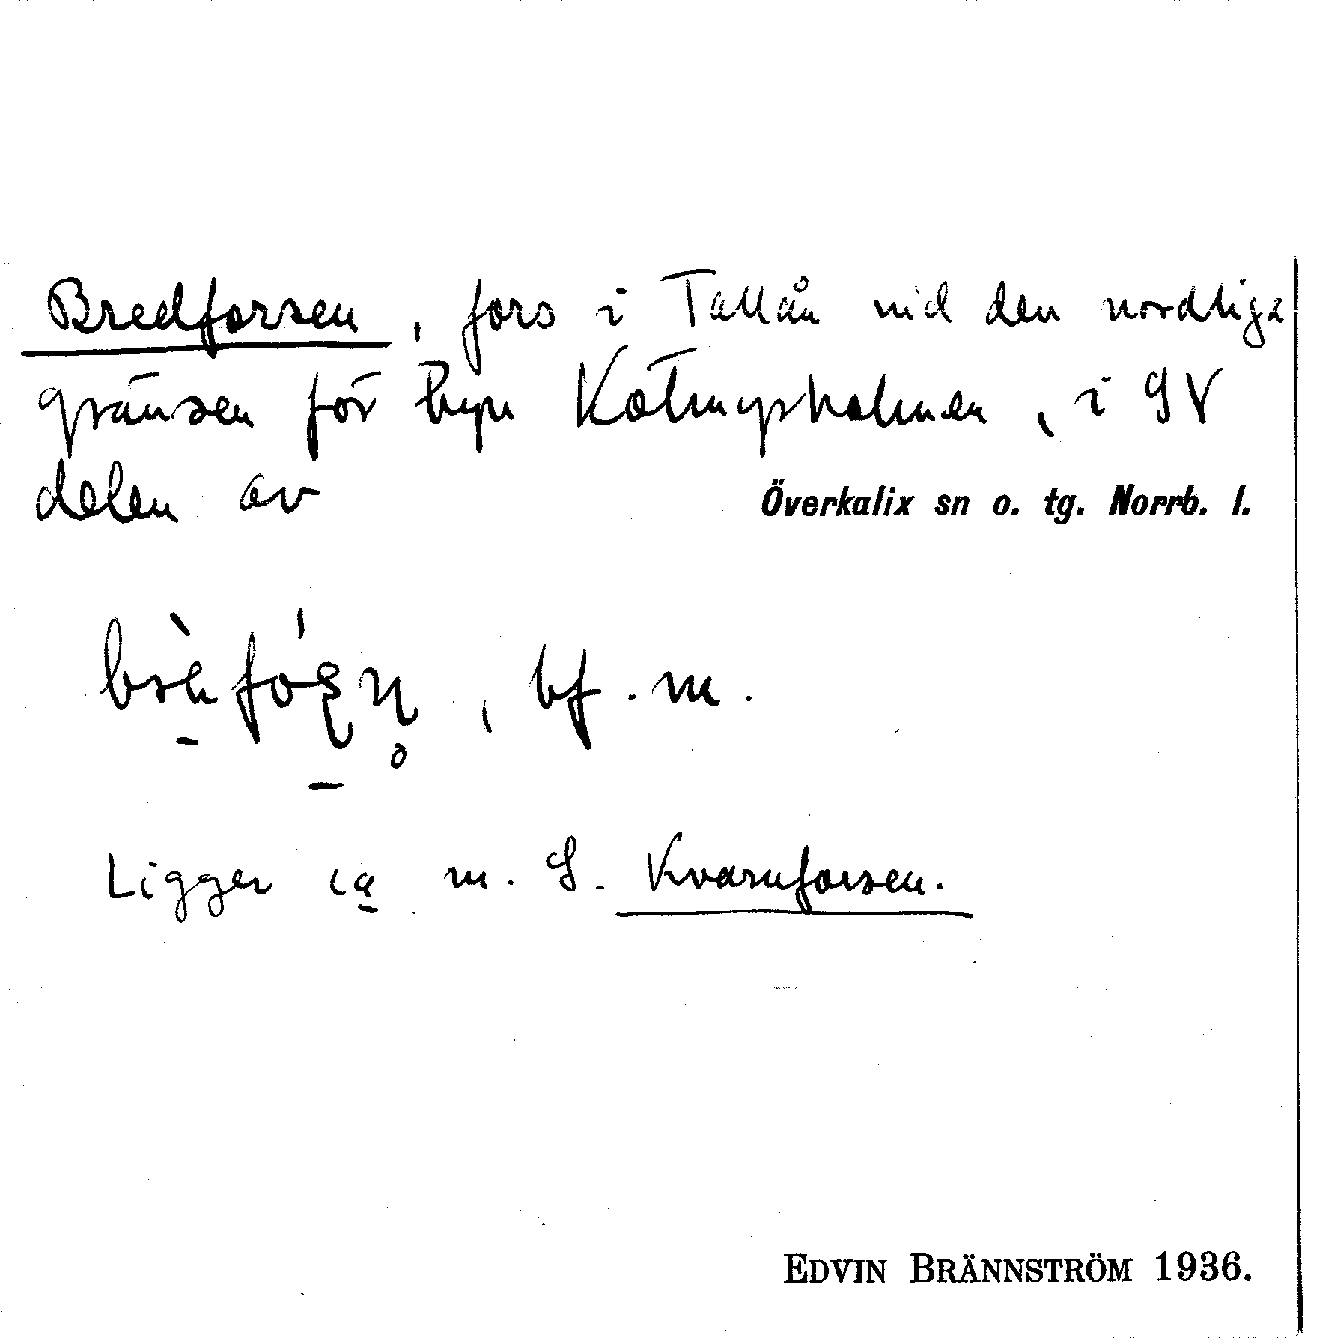 Bredforsen, fors i Tallån vid den nordliga
gränsen för byn Kølmjärsholmen, i SV
delen av Överkalix sn o. tg. Norrb. l.
, bf. m.
Ligger ca m. S. Kvarnforsen.
EDVIN BRÄNNSTRÖM 1936.